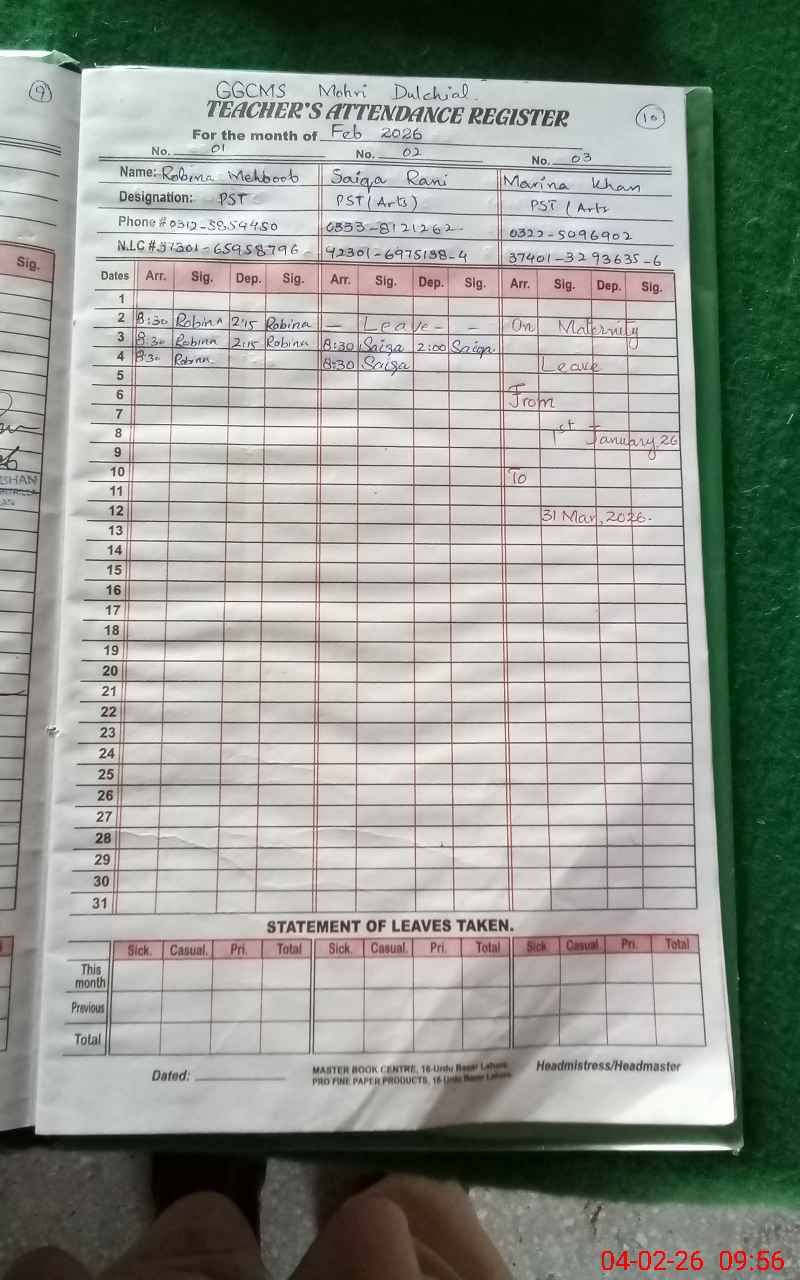 9
GGCMS Mohri Dulchial.
TEACHER'S ATTENDANCE REGISTER
10
For the month of Feb 2026
No. 01 No. 02 No. 03
Name: Robina Mehboob Saiqa Rani Marina Khan
Designation: PST PST (Arts) PST (Arts
Phone # 0312-5854450 0333-8121262 0322-5096902
N.I.C # 37301-65958796- 42301-6975138-4 37401-3293635-6
Sig.
Dates Arr. Sig. Dep. Sig. Arr. Sig. Dep. Sig. Arr. Sig. Dep. Sig.
1
2 8:30 Robina 2:15 Robina - Leave - - On Maternity
3 8:30 Robina 2:15 Robina 8:30 Saiqa 2:00 Saiqa.
4 8:30 Robina 8:30 Saiqa Leave
5
6 From
7
8 1st January, 26
9
10 To
11
12 31 Mar, 2026.
13
14
15
16
17
18
19
20
21
22
23
24
25
26
27
28
29
30
31
STATEMENT OF LEAVES TAKEN.
Sick. Casual. Pri. Total Sick. Casual. Pri. Total Sick Casual Pri. Total
This month
Previous
Total
Dated:
MASTER BOOK CENTRE, 16-Urdu Bazar Lahore.
PRO FINE PAPER PRODUCTS, 16-Urdu Bazar Lahore.
Headmistress/Headmaster
04-02-26 09:56